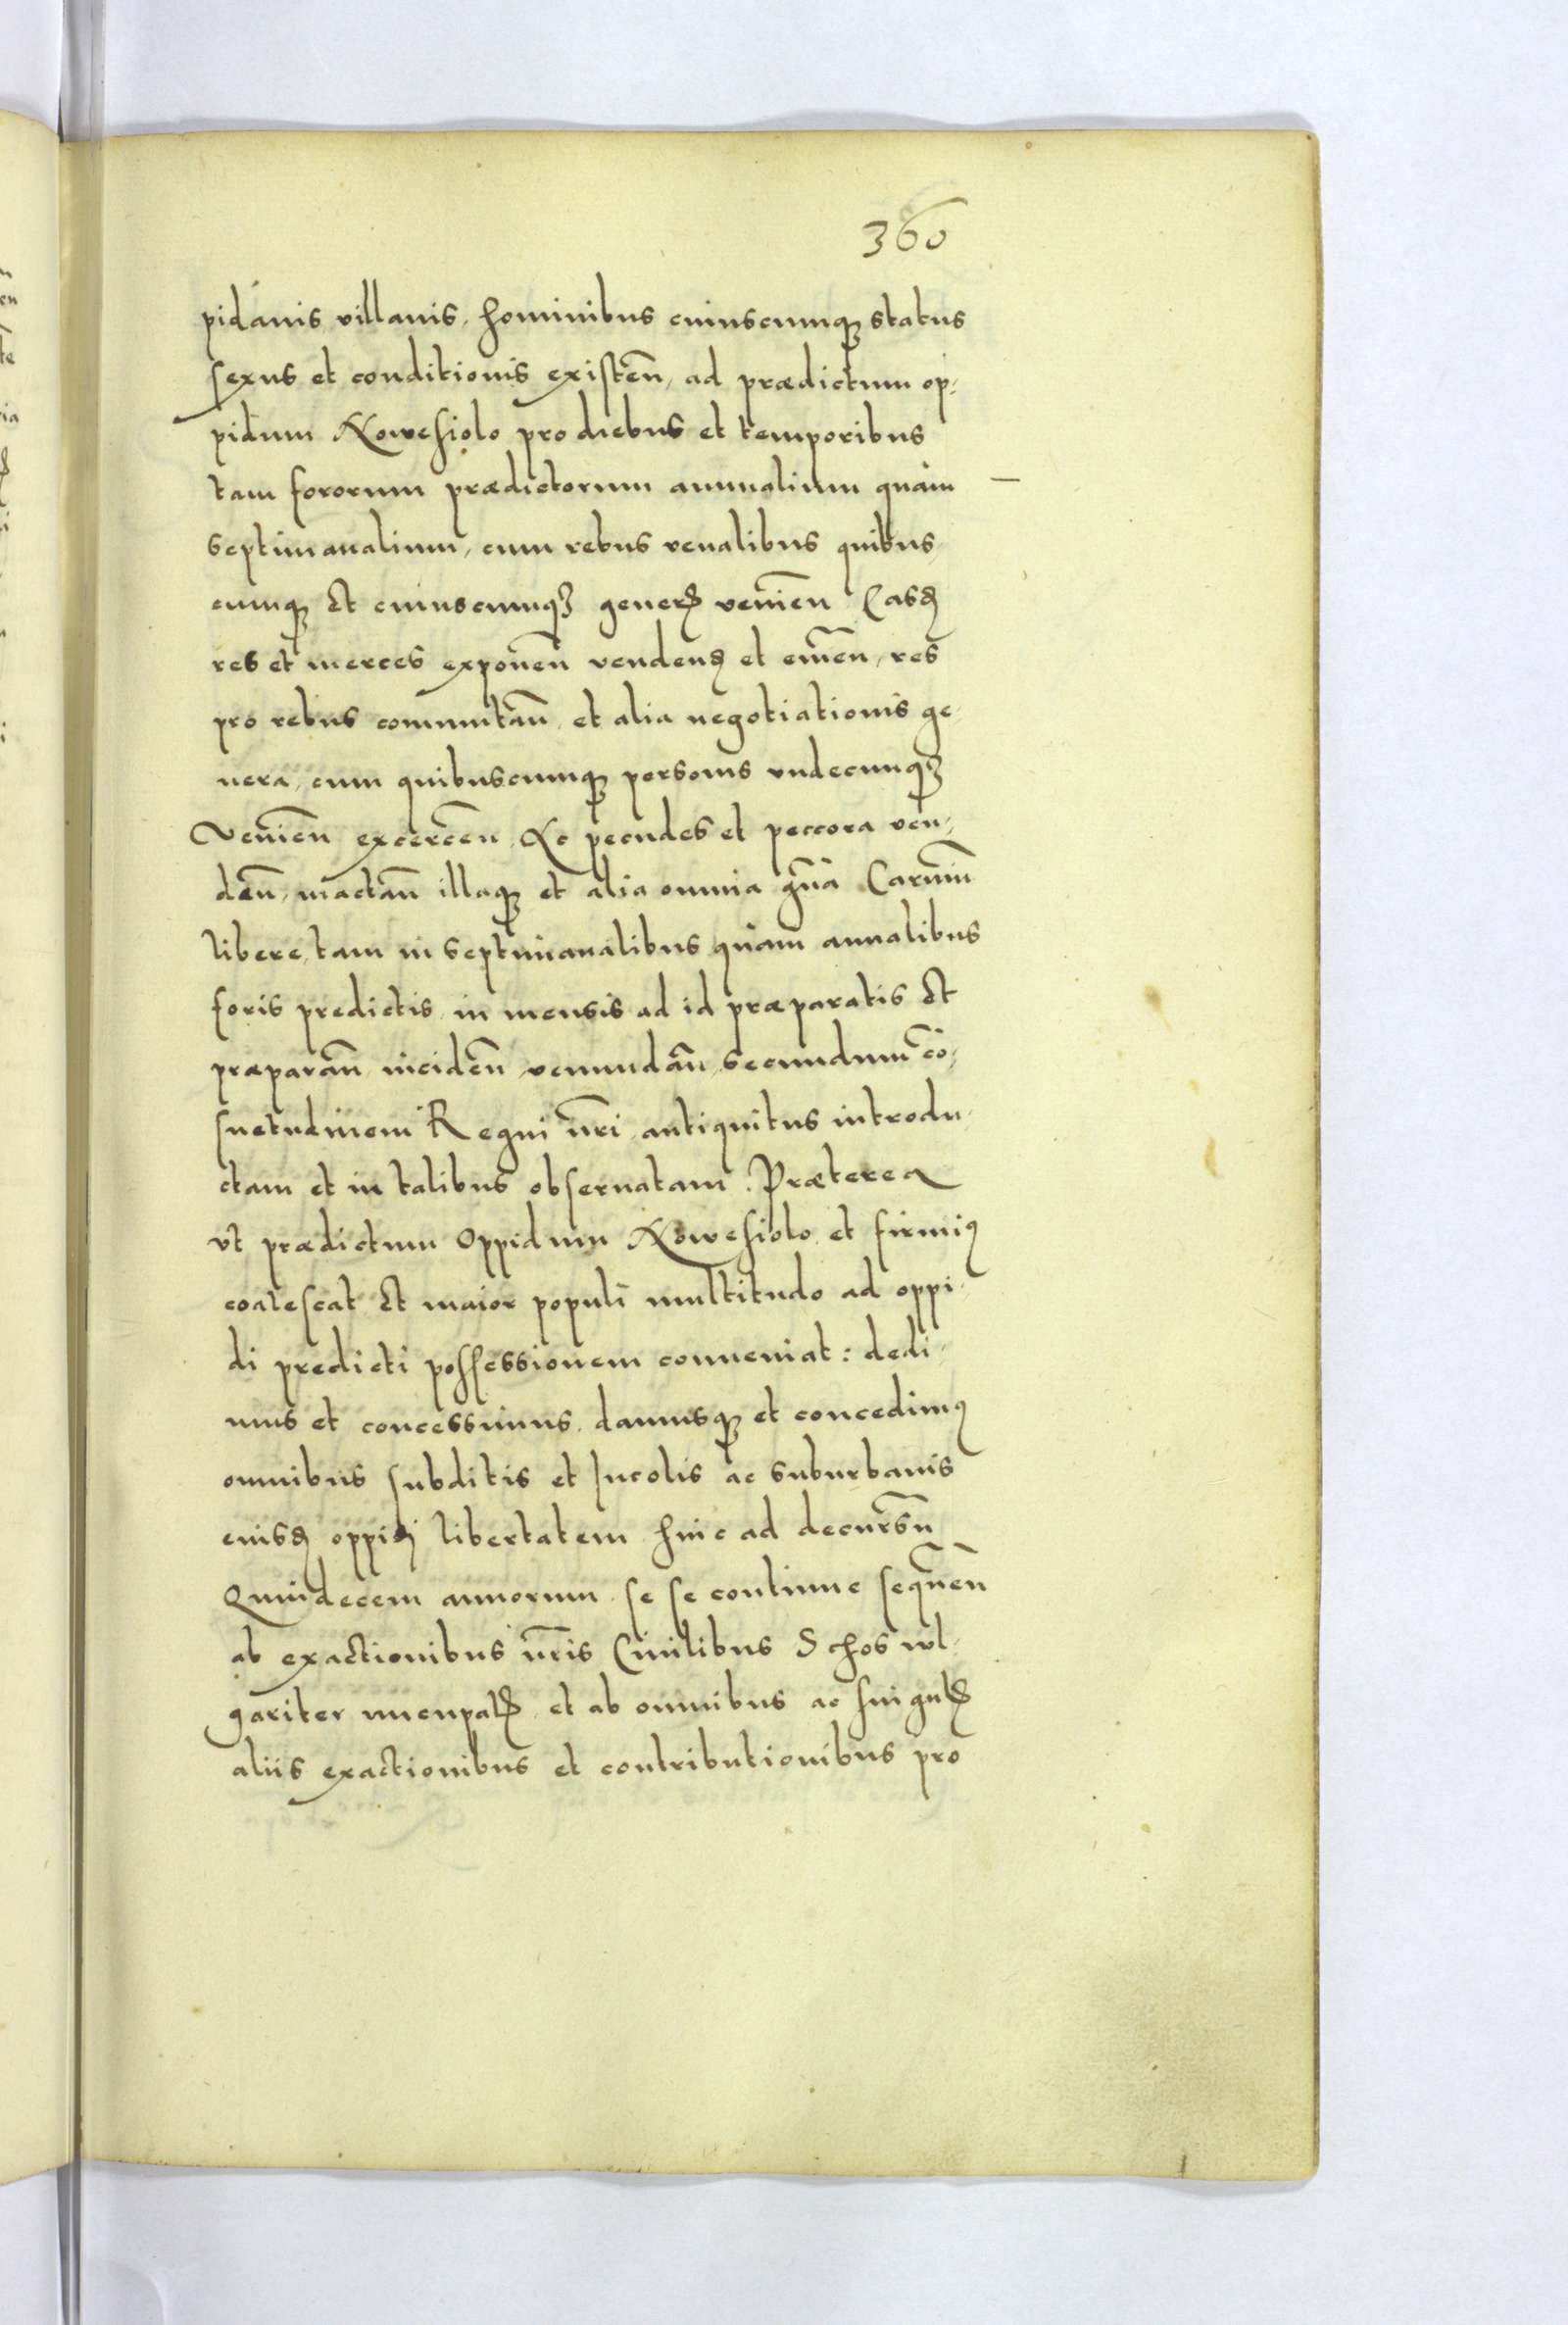 360
pidanis villanis, hominibus cuiuscumq; status
sexus et conditionis existeñ, ad prædictum op-
pidum Nowesiolo pro diebus et temporibus
tam fororum prædictorum annualium quàm
septimanalium, cum rebus venalibus quibus,
cumq; et cuiuscumq; generꝭ venieñ Casꝗ
res et merces exponeñ vendenꝗ et emeñ, res
pro rebus commutañ, et alia negotiationis ge-
nera, cum quibuscumq; personis vndecunq;
venieñ exerceñ Ac pecudes et peccora ven-
deñ, mactañ illaq; et alia omnia gn̄a Carniū
libere, tam in septimanalibus quàm annalibus
foris predictis in mensis ad id præparatis et
præparañ incideñ, venundañ, secundum cō-
suetudinem Regni nr̄i antiquitus introdu-
ctam et in talibus obseruatam. Præterea
vt prædictum Oppidum Nowesiolo et firmiꝰ
coalescat et maior populi multitudo ad oppi-
di predicti possessionem conueniat: dedi-
mus et concessimus, damusq; et concedimꝰ
omnibus subditis et Incolis ac suburbanis
eiusꝗ oppiꝗ libertatem hinc ad decursū
Quindecem annorum se se continue sequeñ
ab exactionibus nr̄is Ciuilibus Schos wl-
gariter nuncupatꝭ et ab omnibus ac singulꝭ
aliis exactionibus et contributionibus pro